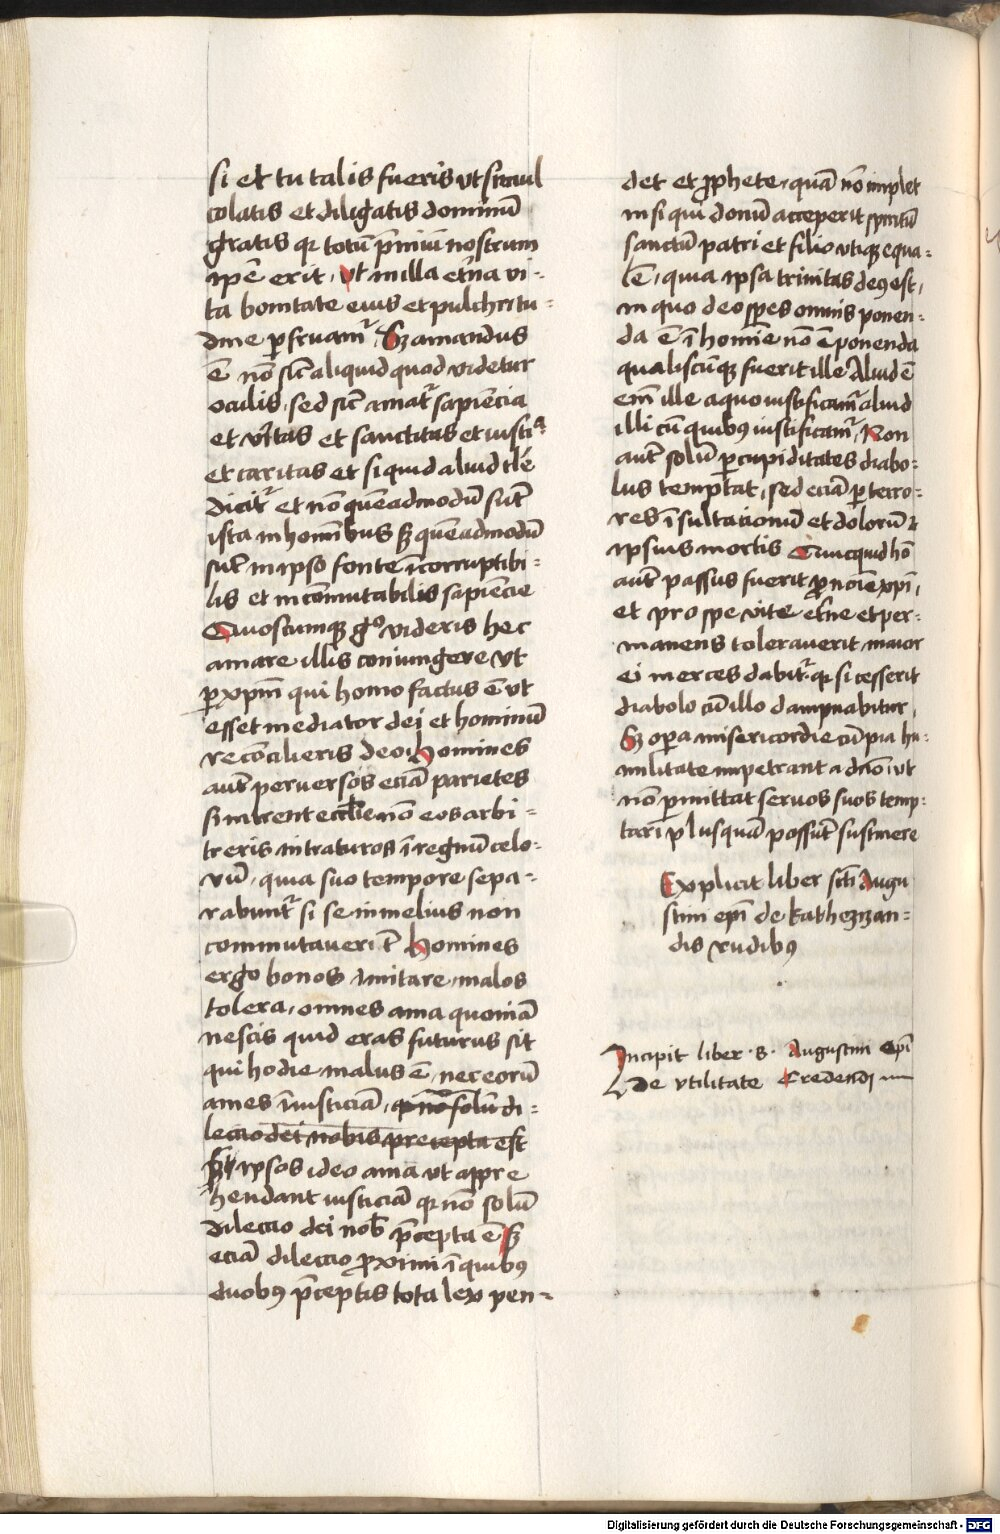 si et tu talis fueris vt simul
colatis et diligatis dominū
gratis qr totū p̄miū nostrum
ipē erit, vt in illa et̓na vi-
ta bonitate eius et pulchritu-
dine ꝑfruam᷑ Sꝫ amandus
ē nō sic̄ aliquid quod videtur
oculis, sed sic̄ amat᷑ sapiēcia
et v̓itas et sanctitas et iustiᵃ
et caritas et si quid aliud tlē
dicit᷑ et nō quēadmodū sūt
ista in hominibus sꝫ quēadmodū
sūt in ipso fonte īcorruptibi-
lis et incōmutabilis sapiēcie
Quoscumqꝫ gᵒ videris hec
amare illis coniungere vt
ꝑ xpm̄ qui homo factus ē vt
esset mediator dei et hominū
reconcilieris deo, Homines
aūt peruersos eciā parietes
si intrent eccl̄ie nō eos arbi-
treris intraturos ī regnū celo-
rū, quia suo tempore sepa-
rabunt᷑ si se in melius non
commutauerīt Homines
ergo bonos imitare, malos
tolera, omnes ama quoniā
nescis quid cras futurus sit
qui hodie malus ē, nec eorū
ames īiusticiā, qr nō solū di-
leccio dei nobis precepta est
sꝫ ipsos ideo ama vt appre
hendant iusticiā qr nō solū
dileccio dei nob̄ p̄cepta ē sꝫ
eciā dileccio ꝓximi ī quibꝰ
duobꝰ p̄ceptis tota lex pen-
det et ꝓphete, quā nō implet
nisi qui donū acceperit spiritū
sanctū patri et filio vtiqꝫ equa-
lē, quia ipsa trinitas deꝰ est,
in quo deo spes omnis ponen-
da ē ī homīe nō ē ponenda
qualiscūqꝫ fuerit ille Aliud ē
em̄ ille a quo iustificam᷑ aliud
illi cū quibꝰ iustificam᷑, Non
aūt solū ꝑ cupiditates diabo-
lus temptat, sed eciā ꝑ terro-
res īsultacionū et dolorū ⁊
ipsius mortis Quicquid hō
aūt passus fuerit ꝓ noīe xpī,
et pro spe vite et̓ne et per-
manens tolerauerit maior
ei merces dabit᷑. qr si cesserit
diabolo cū illo dampnabitur,
Sꝫ oꝑa misericordie cū pia hu-
militate impetrant a dn̄o, vt
nō ꝑmittat seruos suos temp-
tari plusquā possūt sustinere
Explicit liber sc̄ti Augu
stini ep̄i de kathezizan-
dis rudibꝰ
Incipit liber .s. Augustini ep̄i
De vtilitate Credendi
Digitalisierung gefördert durch die Deutsche Forschungsgemeinschaft - DFG